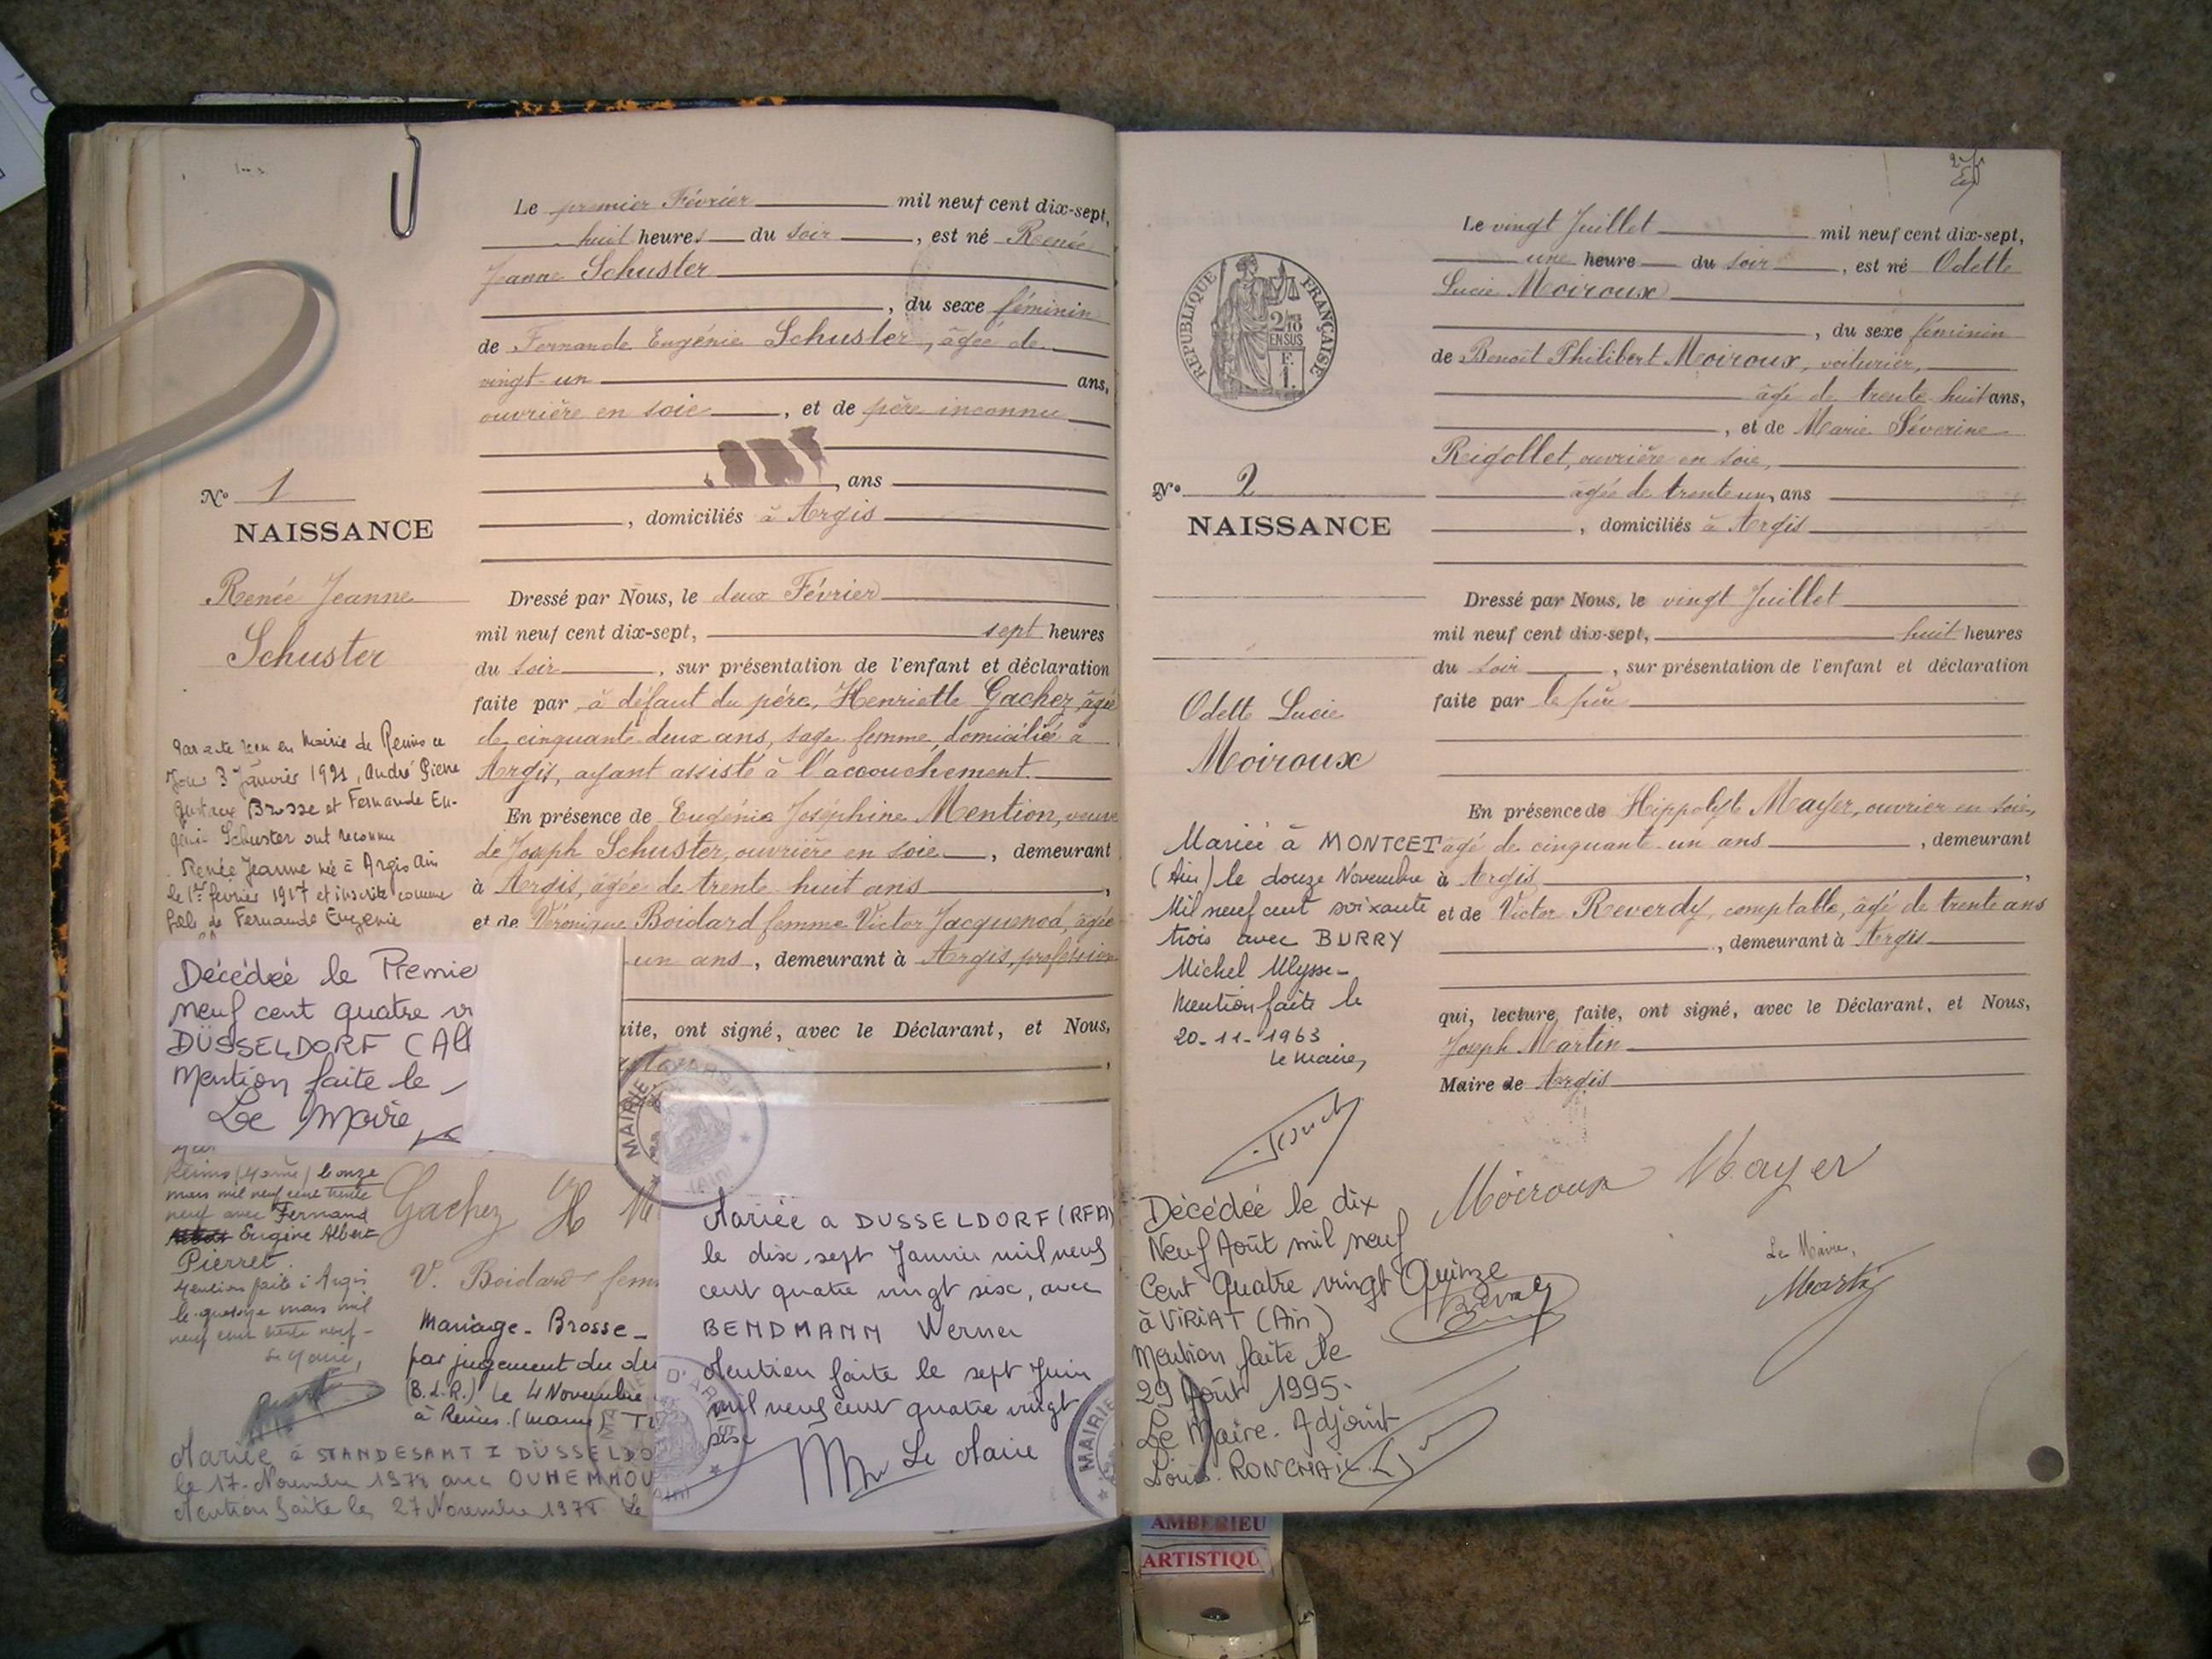 Le premier Février mil neuf cent dix-sept,
huit heures du soir, est né Renée
Jeanne Schuster
, du sexe féminin
de Fernande Eugénie Schuster, âgée de
vingt-un ans,
ouvrière en soie, et de père inconnu
, ans
, domiciliés à Argis
No 1
NAISSANCE
Renée Jeanne
Schuster
Dressé par Nous, le deux Février
mil neuf cent dix-sept, sept heures
du soir, sur présentation de l'enfant et déclaration
faite par à défaut du père, Henriette Gachez, âgée
de cinquante deux ans, sage femme, domiciliée à
Argis, ayant assisté à l'accouchement.
En présence de Eugénie Joséphine Mention, veuve
de Joseph Schuster, ouvrière en soie, demeurant
à Argis, âgée de trente huit ans,
et de Véronique Boidard femme Victor Jacquenod, âgée
un ans, demeurant à Argis, profession
ite, ont signé, avec le Déclarant, et Nous,
Par acte reçu en Mairie de Reims ce
Jour 3 Janvier 1921, André Pierre
Gustave Brosse et Fernande Eu-
génie Schuster ont reconnu
Renée Jeanne née à Argis Ain
le 1er février 1917 et inscrite comme
fille de Fernande Eugénie
Décédée le Premie
neuf cent quatre vi
DÜSSELDORF (All
Mention faite le
Le Maire,
Reims (Marne) le onze
mars mil neuf cent trente
neuf avec Fernand
Eugène Albert
Pierret.
Mention faite à Argis
le quatorze mars mil
neuf cent trente neuf-
Le Maire,
Gachez H
V. Boidard fem
Mariage-Brosse-
par jugement du du
(B.L.R.) le 4 Novembre
à Reims (Marne)
Mariée à STANDESAMT I DÜSSELDO
le 17 Novembre 1978 avec OUHEMMOU
Mention faite le 27 Novembre 1978 Le
MAIRIE D'ARGIS
(AIN)
Mariée à DUSSELDORF (RFA)
le dix-sept Janvier mil neuf
cent quatre vingt six, avec
BENDMANN Werner
Mention faite le sept Juin
mil neuf cent quatre vingt
six
Le Maire
D'ARGIS
MAIRIE
Le vingt Juillet mil neuf cent dix-sept,
une heure du soir, est né Odette
Lucie Moiroux
, du sexe féminin
de Benoît Philibert Moiroux, voiturier,
âgé de trente huit ans,
, et de Marie Séverine
Reigollet, ouvrière en soie,
âgée de trente un, ans
, domiciliés à Argis
RÉPUBLIQUE FRANÇAISE
2/10
EN SUS
F.
1.
No 2
NAISSANCE
Odette Lucie
Moiroux
Dressé par Nous, le vingt Juillet
mil neuf cent dix-sept, huit heures
du soir, sur présentation de l'enfant et déclaration
faite par le père
En présence de Hippolyte Mayer, ouvrier en soie,
âgé de cinquante-un ans, demeurant
à Argis,
et de Victor Reverdy, comptable, âgé de trente ans
, demeurant à Argis
qui, lecture faite, ont signé, avec le Déclarant, et Nous,
Joseph Martin
Maire de Argis
Mariée à MONTCET
(Ain) le douze Novembre
Mil neuf cent soixante
trois avec BURRY
Michel Ulysse-
Mention faite le
20-11-1963
Le Maire,
Moiroux Mayer
Le Maire,
Martin
Décédée le dix
Neuf Août mil neuf
Cent Quatre vingt Quinze
à VIRIAT (Ain)
Mention faite le
29 Août 1995-
Le Maire-Adjoint
Louis
AMBERIEU
ARTISTIQU